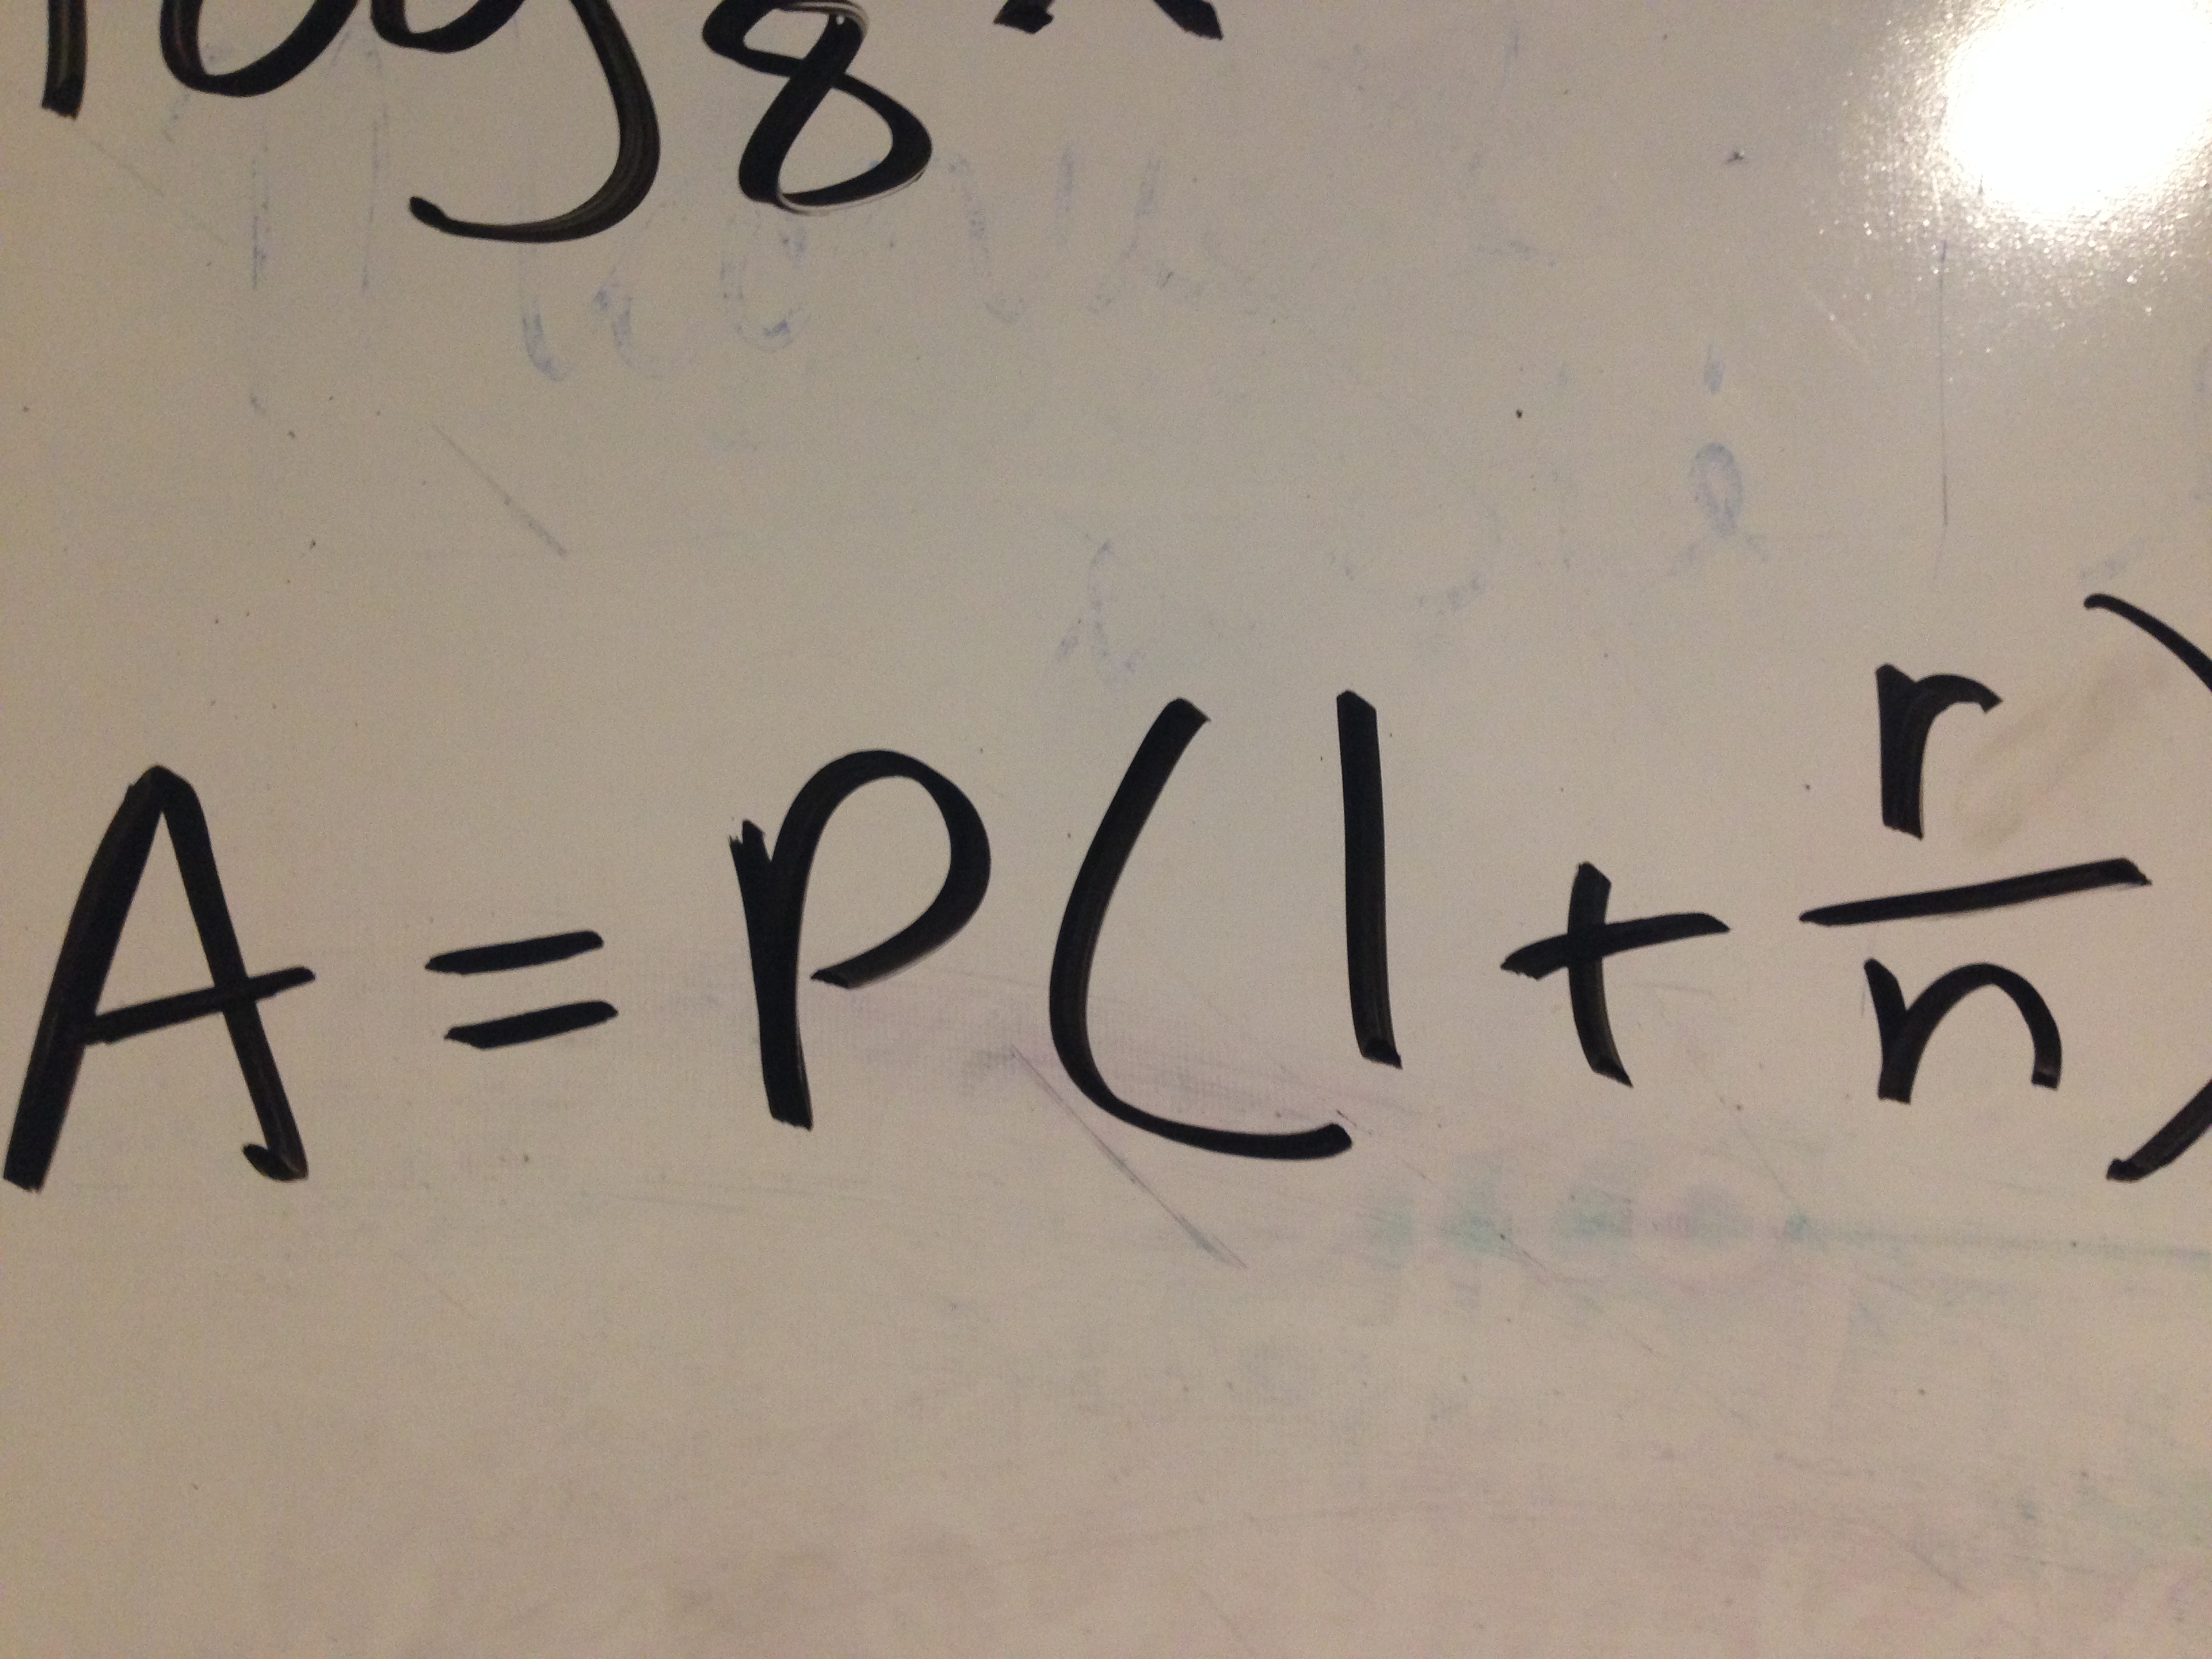 log₈
A = P(1 + r/n)